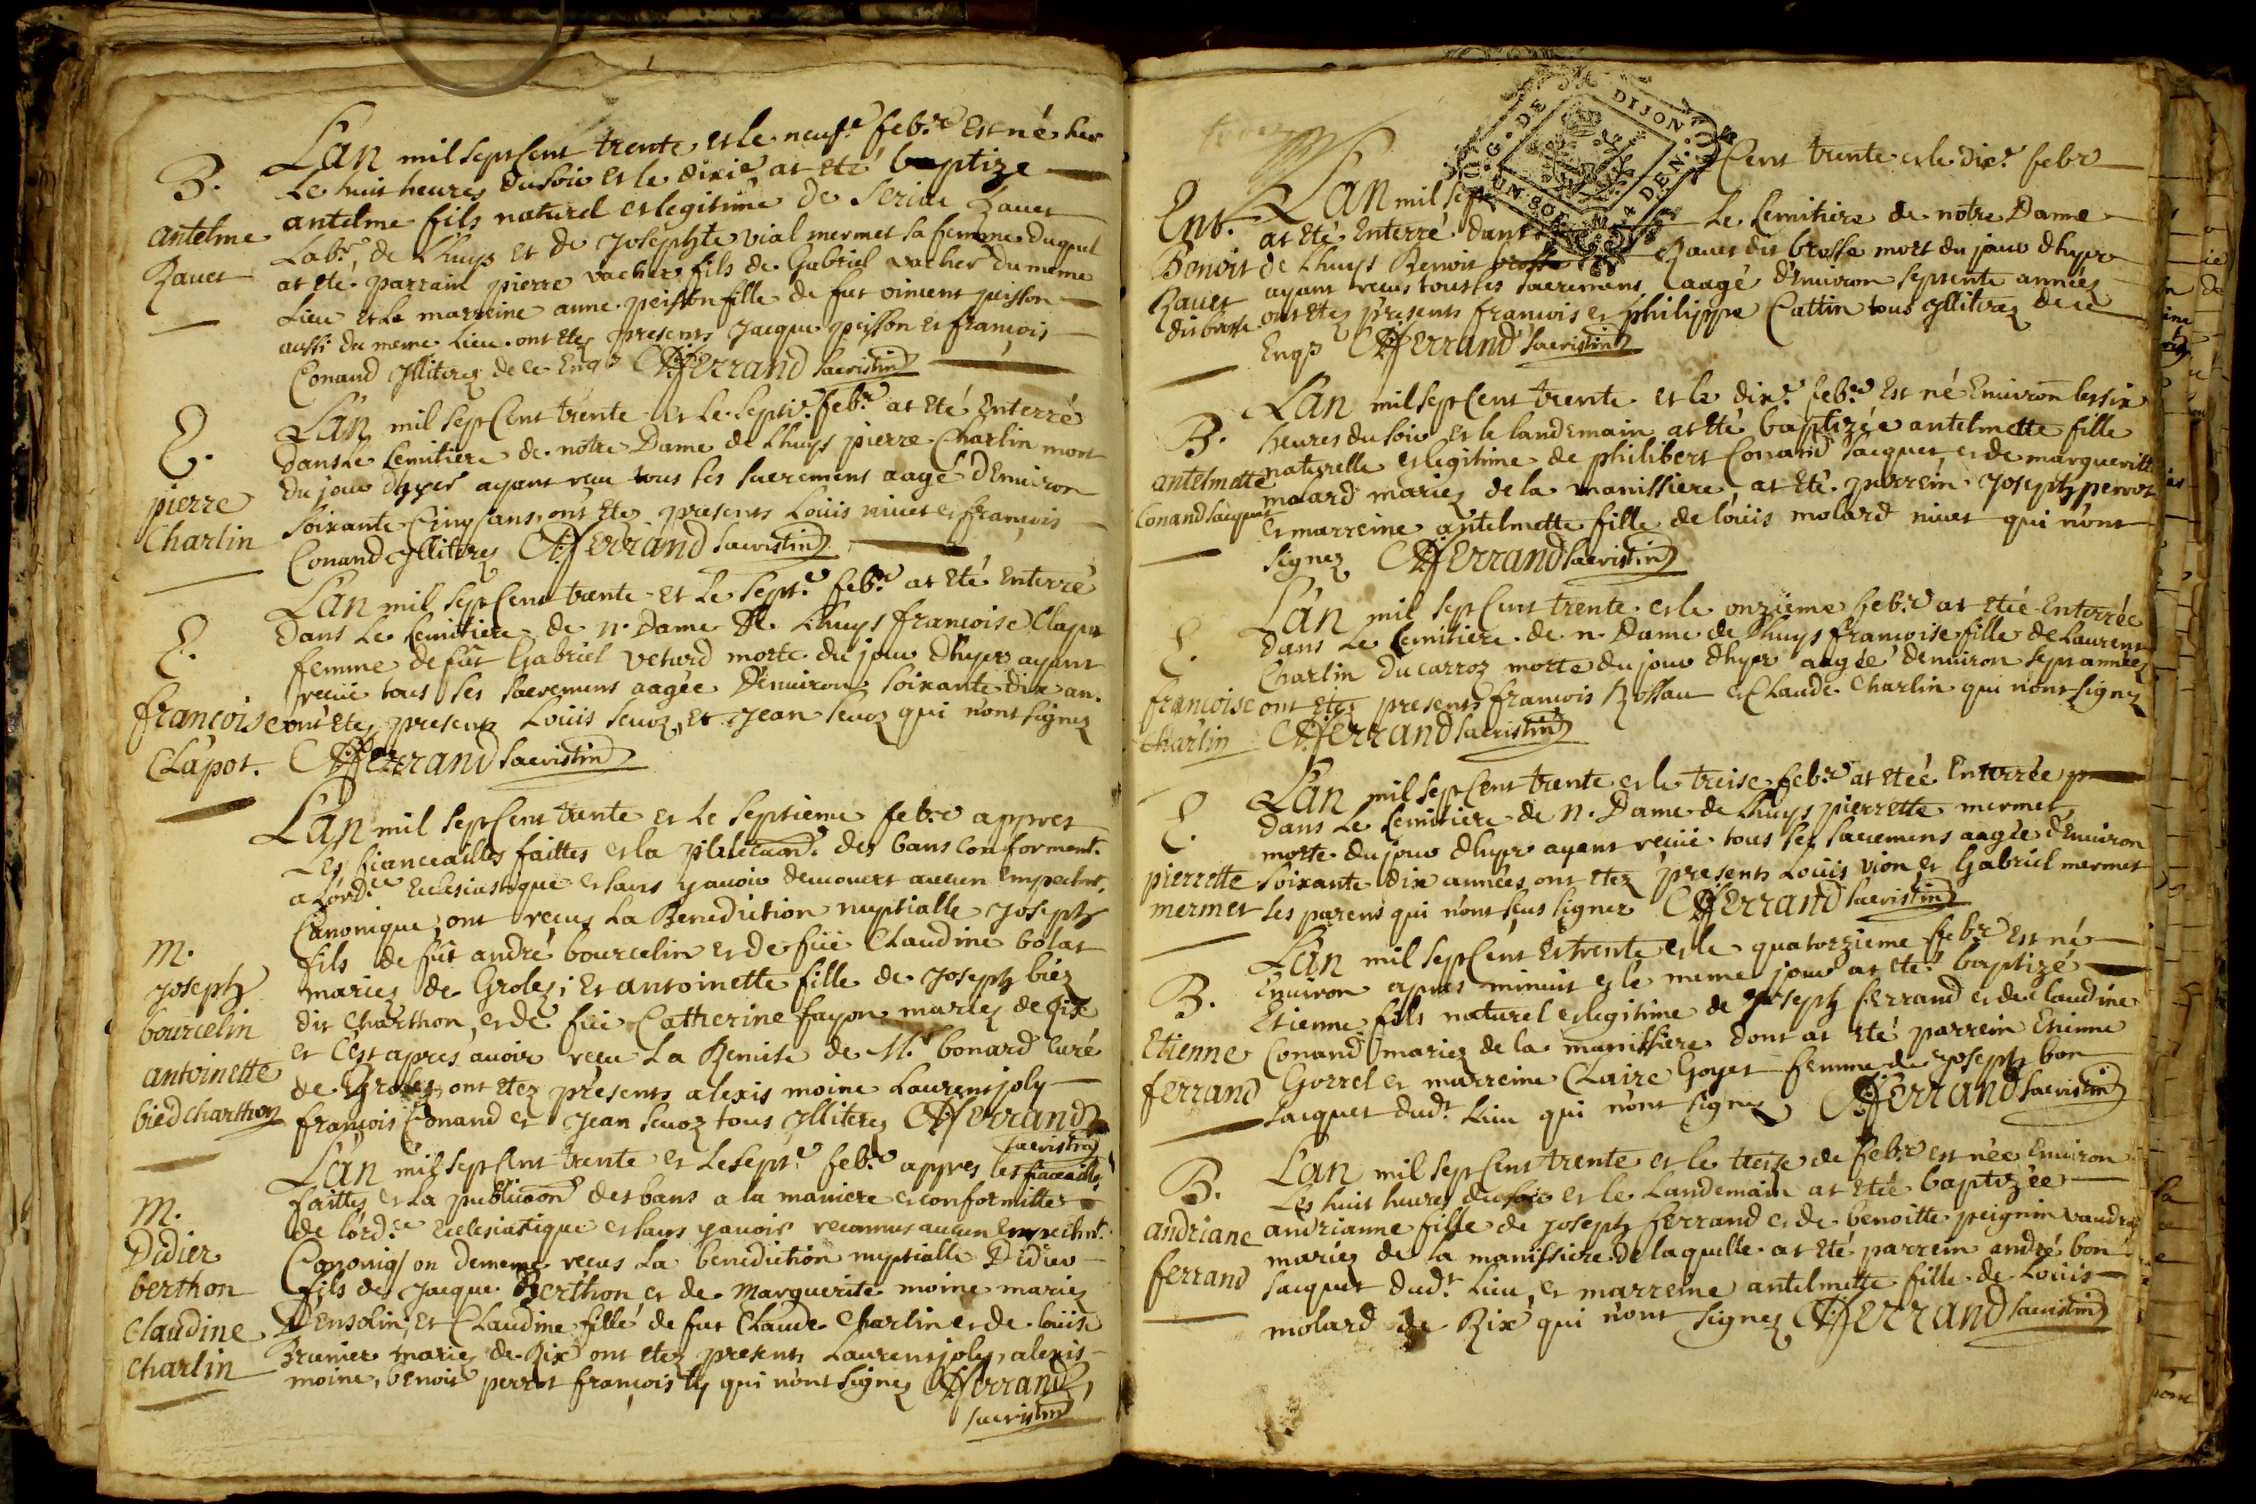 B.
antelme
Ravet
Lan mil sept Cent trente et le neuf.e feb.re Est né sur
Le huit heures du soir et le dixi.e at eté baptize
antelme fils naturel et legitime de Ravet
Lab.r de Lhuys et de Josephte vial mermet sa femme duquel
at eté parrain pierre vacher fils de Gabriel vacher du meme
Lieu et La marreine anne peisson fille de fut vincent peisson
aussi du meme Lieu. ont etez presents Jacque peisson et françois
Conand Jlliterez de ce Enq.s Ferrand Sacristin
E.
pierre
Charlin
Lan mil sept Cent trente et Le septi.e feb.re at eté Enterré
dans Le Cemitiere de notre Dame de Lhuys pierre Charlin mort
du jour dhyer ayant receu tous ses sacremens aagé dEnviron
soixante Cinq ans, ont etez presents Loüis nivet et françois
Conand Jlliterez Ferrand Sacristin
E.
françoise
Clapot.
Lan mil sept Cent trente et Le Sept.e feb.re at eté Enterré
dans Le Cemitiere de n. Dame de Lhuys françoise Clapot
femme de fût Gabriel Vetard morte du jour dhyer ayant
receüe tous ses sacremens aagée dEnviron soixante dix an.
ont etez presents Loüis sevoz, et Jean sevoz qui n'ont signez
Ferrand Sacristin
m.
Joseph
bourcelin
antoinette
bied charthon
Lan mil sept Cent trente et Le septieme feb.re appres
Les fiancailles faittes et la plublicaon.e des bans conforment.
a Lord.re Ecclesiastique et sans y avoir decouvert aucun Empechnt.
Canonique; ont receus La Benediction nuptialle Joseph
fils de fût andré bourcelin et de füe Claudine bolat
mariez de Grolez; Et antoinette fille de Joseph biez
dit Charthon, et de füe Catherine fayon mariez de Rix
et Cest apres avoir receu La Remise de M.r bonard Curé
de Grolez ont etez presents alexis moine Laurent joly
françois Conand et Jean Sevoz tous Jlliterez Ferrand
Sacristin
m.
Didier
berthon
Claudine
Charlin
Lan mil sept Cent trente et Le sept.e feb.re appres les fiancailles
faittes, et La publicaon des bans a la maniere et conformitté
de lord.re Ecclesiastique et sans y avoir reconnus aucun Empechnt.
Canoniq/ on dememe receus La benediction nuptialle Didier
fils de Jacque Berthon et de Marguerite moine mariez
et Claudine fille de fut Claude Charlin et de Loüise
Brunier mariez de Rix ont etez presents Laurent joly, alexis
moine, benoit perrot françois ly qui n'ont signez Ferrand,
Sacristin
G. DE DIJON
UN SOL 4 DEN.
Ent.
Benoit
Ravet
dit brosse
Lan mil sept Cent trente et le dix.e feb.re
at eté Enterré dans Le Cemitiere de notre Dame
de Lhuys Benoit brosse Ravet dit brosse mort du jour dhyer
ayant receus tous les sacremens aagé dEnviron septente années
ont etez presents françois et philippe Cattin tous Jlliterez de ce
Enq.s Ferrand Sacristin
B.
antelmette
Conand Jacquet
Lan mil sept Cent trente et le dix.e feb.re Est né Environ les six
heures du soir et le landemain at eté baptizée antelmette fille
naturelle et legitime de philibert Conand Jacquet, et de margueritte
molard mariez de la manissiere, at eté parrein Joseph perrot
et marreine antelmette fille de loüis molard nivet qui n'ont
signez Ferrand Sacristin
E.
françoise
Charlin
Lan mil sept Cent trente et le onzieme feb.re at etée Enterrée
dans Le Cemitiere de n. Dame de Lhuys françoise fille de Laurent
Charlin du carroz morte du jour dhyer aagée denviron sept années
ont etez presents françois Rossau et Claude Charlin qui n'ont signez
Ferrand Sacristin
E.
pierrette
mermet
Lan mil sept Cent trente et le treise feb.re at eteé Enterrée
dans Le Cemitiere de N. Dame de Lhuys pierrette mermet
morte du jour dhyer ayant receüe tous les sacremens aagée dEnviron
soixante dix années, ont etez presents Loüis vion et Gabriel mermet
ses parens qui n'ont sçus signer Ferrand Sacristin
B.
Etienne
ferrand
Lan mil sept Cent Et trente et le quatorzieme feb.re Est né
Environ apres minuit et le meme jour at eté baptizé
Etienne fils naturel et legitime de Joseph ferrand et de Claudine
Conand mariez de la manissiere dont at eté parrein Etienne
Gorrel et marreine Claire Goyet femme de Joseph bon
Jacquet dud.t Lieu qui n'ont signez Ferrand Sacristin
B.
andriane
ferrand
Lan mil sept Cent trente et le treize de feb.re est née Environ
Les huit heures du soir et le Landemain at etée baptizée
andrianne fille de Joseph ferrand et de benoitte peignin vaudrez
mariez de la manissiere de laquelle at eté parrein andré bon
Jacquet dud.t Lieu, et marreine antelmette fille de Loüis
molard de Rix qui n'ont signez Ferrand Sacristin